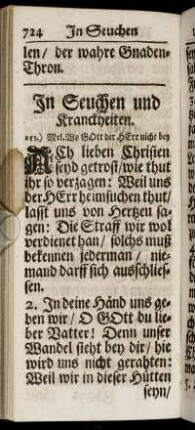 724 In Seuchen
len/ der wahre Gnaden-
Thron.
In Seuchen und
Kranckheiten.
Mel. Wo GOtt der HErr nicht bey
ACh lieben Christen
seyd getrost/ wie thut
ihr so verzagen: Weil uns
der HErr heimsuchen thut/
lasst uns von Hertzen sa-
gen: Die Straff wir wol
verdienet han/ solchs muß
bekennen jederman/ nie-
mand darff sich ausschlies-
sen.
2. In deine Händ uns ge-
ben wir/ O GOtt du lie-
ber Vatter! Denn unser
Wandel sieht bey dir/ hie
wird uns nicht gerahten:
Weil wir in dieser Hütten
seyn/